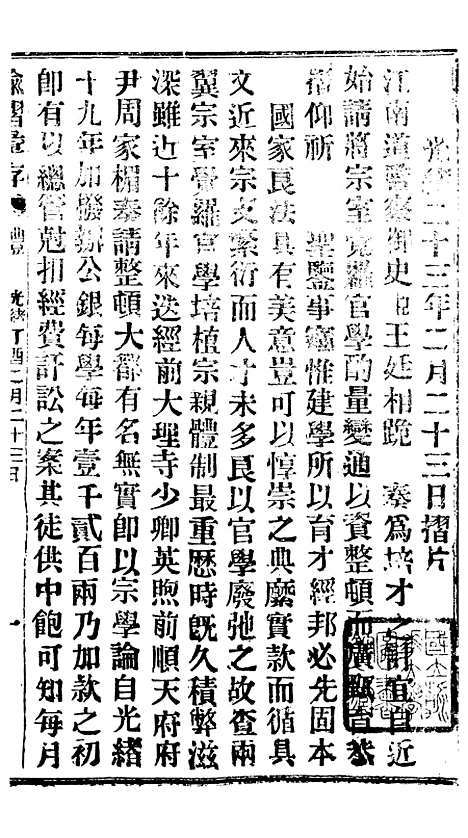 光緒二十三年二月二十三日摺片
江南道監察御史臣王廷相跪 奏爲培才之計宜自近
始請將宗室覺羅官學酌量變通以資整頓而廣甄
摺仰祈 聖鑒事竊惟建學所以育才經邦必先固本
國家良法具有美意豈可以惇崇之典糜實款而循具
文近來宗支繁衍而人才未多良以官學廢弛之故查兩
翼宗室覺羅官學培植宗親體制最重歷時旣久積弊滋
深雖近十餘年來迭經前大理寺少卿英煦前順天府府
尹周家楣奏請整頓大都有名無實卽以宗學論自光緒
十九年加撥辦公銀每學每年壹千貳百兩乃加款之初
卽有以總管尅扣經費訐訟之案其徒供中飽可知每月
諭摺彙存 禮 光緒丁酉二月二十三日